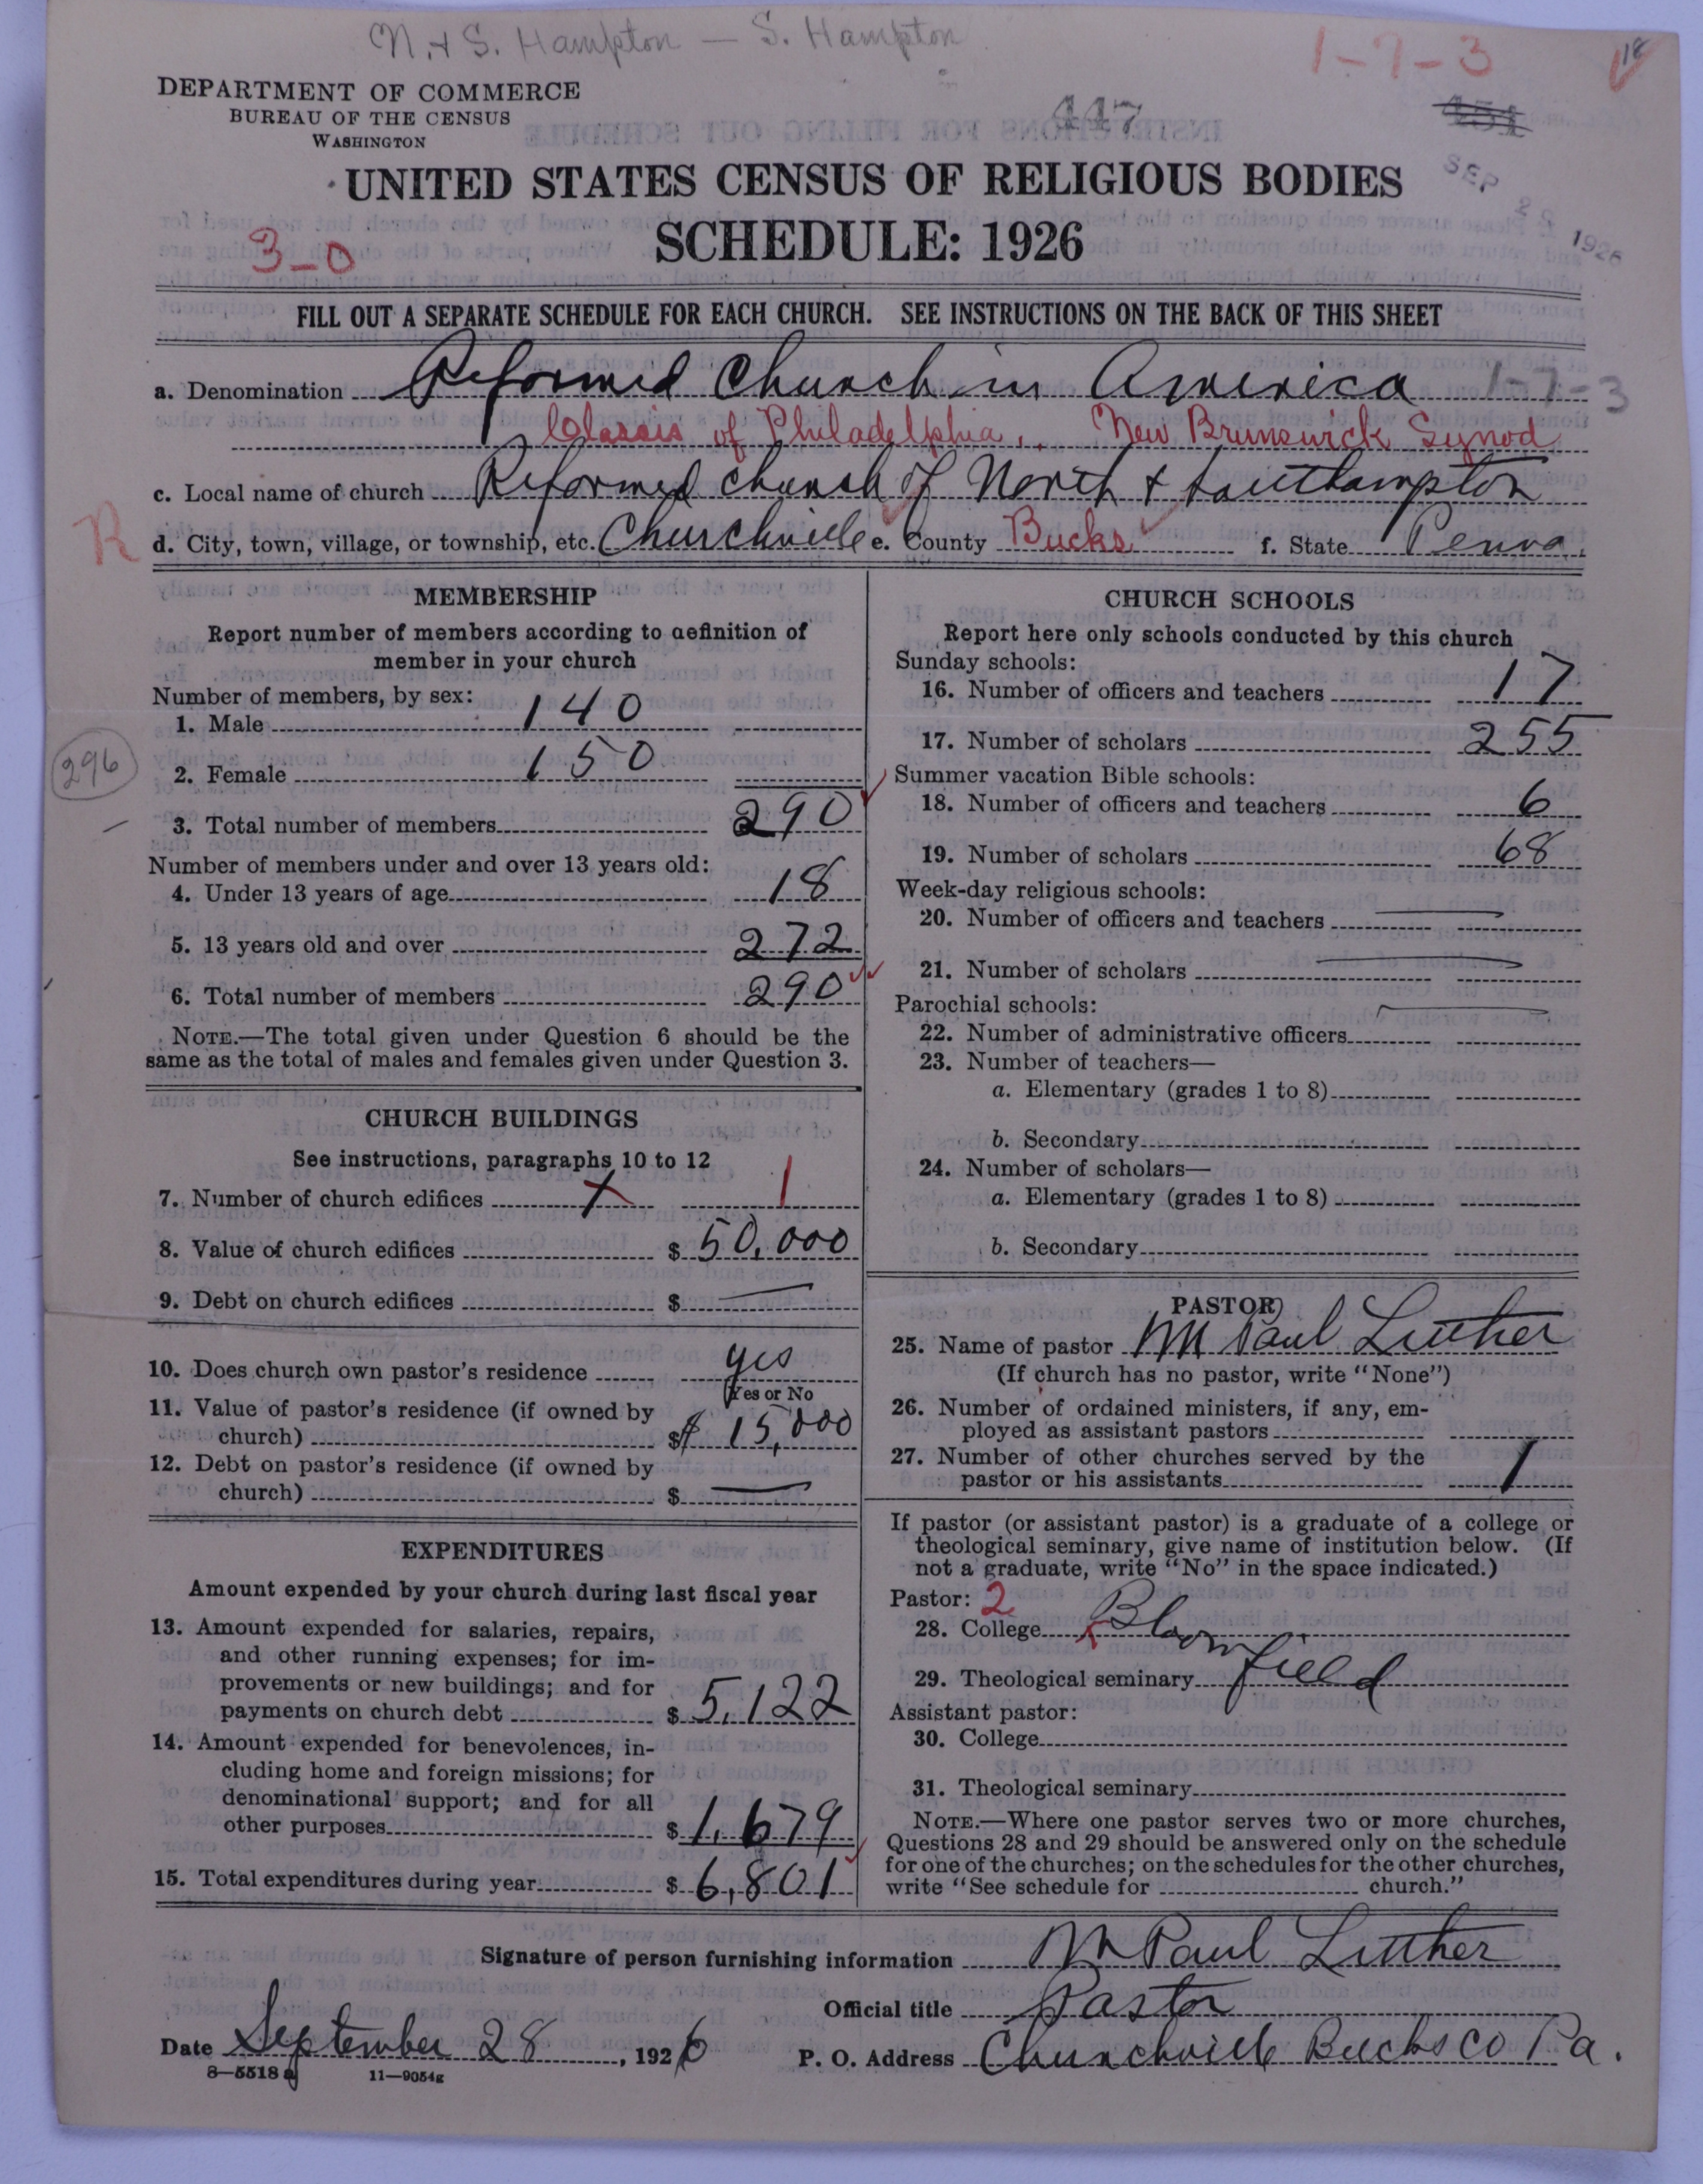 N. & S. Hampton — S. Hampton
1-7-3
18
DEPARTMENT OF COMMERCE
BUREAU OF THE CENSUS
WASHINGTON
447
451
SEP 29 1926
UNITED STATES CENSUS OF RELIGIOUS BODIES
SCHEDULE: 1926
3-0
FILL OUT A SEPARATE SCHEDULE FOR EACH CHURCH. SEE INSTRUCTIONS ON THE BACK OF THIS SHEET
a. Denomination Reformed Church in America 1-7-3
Classis of Philadelphia, New Brunswick Synod
c. Local name of church Reformed church of North & Southampton
R
d. City, town, village, or township, etc. Churchville e. County Bucks f. State Penna.
MEMBERSHIP
Report number of members according to definition of
member in your church
Number of members, by sex:
1. Male 140
2. Female 150
296
3. Total number of members 290
Number of members under and over 13 years old:
4. Under 13 years of age 18
5. 13 years old and over 272
6. Total number of members 290
NOTE.—The total given under Question 6 should be the
same as the total of males and females given under Question 3.
CHURCH BUILDINGS
See instructions, paragraphs 10 to 12
7. Number of church edifices 1
8. Value of church edifices $ 50,000
9. Debt on church edifices $ —
10. Does church own pastor's residence yes
(Yes or No
11. Value of pastor's residence (if owned by
church) $ 15,000
12. Debt on pastor's residence (if owned by
church) $ —
EXPENDITURES
Amount expended by your church during last fiscal year
13. Amount expended for salaries, repairs,
and other running expenses; for im-
provements or new buildings; and for
payments on church debt $ 5,122
14. Amount expended for benevolences, in-
cluding home and foreign missions; for
denominational support; and for all
other purposes $ 1,679
15. Total expenditures during year $ 6,801
CHURCH SCHOOLS
Report here only schools conducted by this church
Sunday schools:
16. Number of officers and teachers 17
17. Number of scholars 255
Summer vacation Bible schools:
18. Number of officers and teachers 6
19. Number of scholars 68
Week-day religious schools:
20. Number of officers and teachers —
21. Number of scholars —
Parochial schools: —
22. Number of administrative officers
23. Number of teachers—
a. Elementary (grades 1 to 8)
b. Secondary
24. Number of scholars—
a. Elementary (grades 1 to 8)
b. Secondary
PASTOR
25. Name of pastor M Paul Luther
(If church has no pastor, write "None")
26. Number of ordained ministers, if any, em-
ployed as assistant pastors
27. Number of other churches served by the
pastor or his assistants 1
If pastor (or assistant pastor) is a graduate of a college or
theological seminary, give name of institution below. (If
not a graduate, write "No" in the space indicated.)
Pastor: 2
28. College Bloomfield
29. Theological seminary
Assistant pastor:
30. College
31. Theological seminary
NOTE.—Where one pastor serves two or more churches,
Questions 28 and 29 should be answered only on the schedule
for one of the churches; on the schedules for the other churches,
write "See schedule for church."
Signature of person furnishing information M Paul Luther
Official title Pastor
Date September 28, 1926 P. O. Address Churchville Bucks Co Pa.
8-5518 a 11-9054g